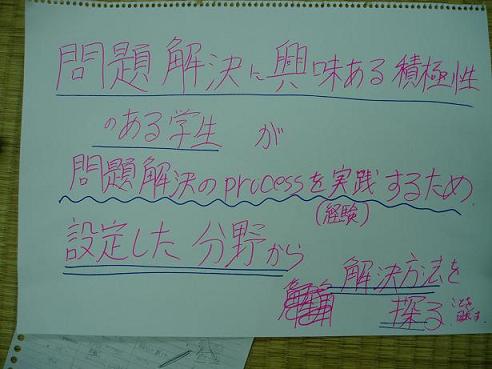 問題解決に興味ある積極性
のある学生が
問題解決のprocessを実践するため
(経験)
設定した分野から
解決方法を
探る